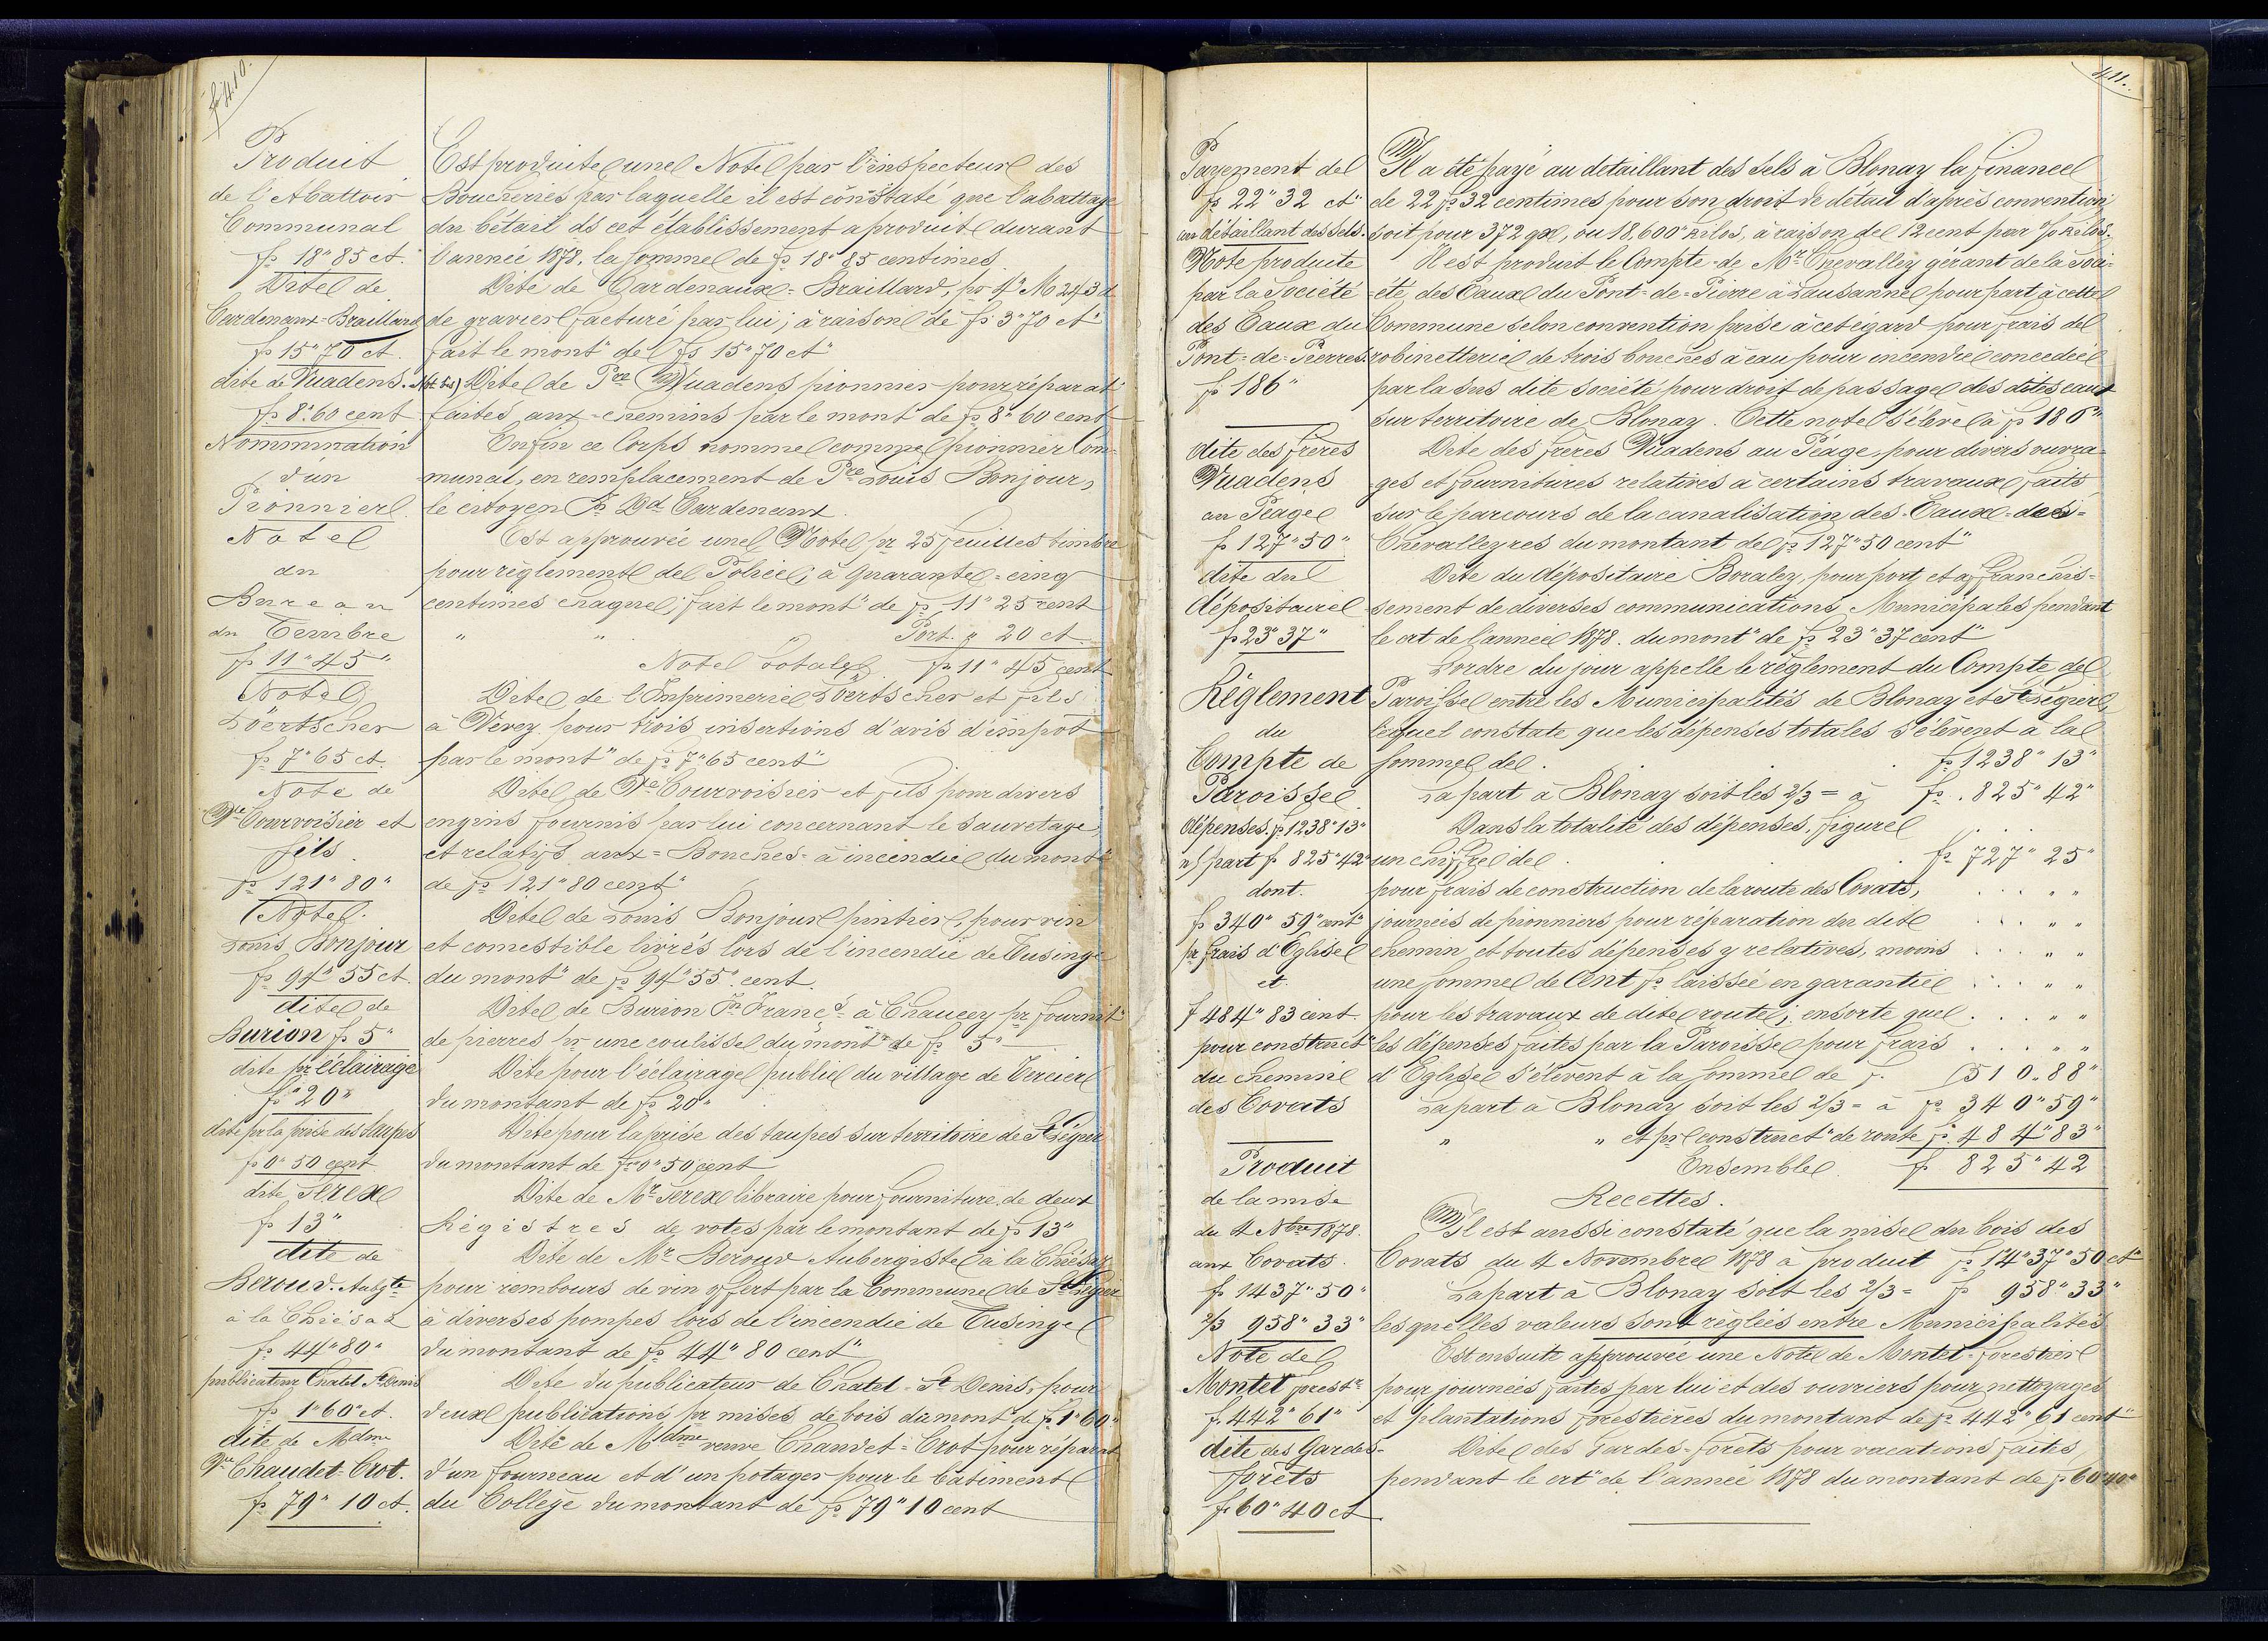 fo 410.
Produit
de l'Abattoir
Communal
fs 18" 85 ct.
Ditel de
Cardenaux=Braillard
fs 15" 70 ct.
dite de Vuadens.
fs 8" 60 cent
Nommination
d'un
Pionnierl.
Notel
du
Bureau
du Timbre
fs 11" 45"
Notel
Löertscher
fs 7" 65 ct.
Note de
Vve Courvoisier et
fils
fs 121" 80"
Notel.
Louis Bonjour
fs 94" 55 ct.
ditel de
Burion fs 5"
dite pr éclairage
fs 20"
dite pr la prise des taupes
fs 0" 50 cent
dite Jerex
fs 13"
dite de
Beroud. Aubgte
à la Chiésaz
fs 44" 80"
publicateur Chatel St Denis
fs 1" 60" ct.
dite de Mdme
Vve Chaudet=Crot.
fs 79" 10 ct.
Est produitel unel Notel par l'inspecteurl des
Boucheries par laquelle il est constaté que l'abattage
du bétail ds cet établissement a produit durant
l'année 1878. la sommel de fs 18" 85 centimes
Dite de Cardenaux=Braillard, pr 4" M 243 d
de gravierl facturé par lui; à raisonl de fs 3" 70 ct"
fait le mont" del fs 15" 70 ct"
Ditel de Pre Vuadens pionnier pour réparat"
faites aux=chemins par le mont" de fs 8" 60 cent
Enfin ce Corps nommel commel pionnier Com-
munal, en remplacement de Pre Louis Bonjour,
le citoyen Fs Ld Cardenaux.
Est approuvée unel Notel pr 25 feuilles timbre
pour règlementl del Policel; à Quarantel=cinq
centimes chaquel; fait le mont" de fs 11" 25 cent
" " Port. " 20 ct
Notel totalel fs 11" 45 cent
Ditel de l'Imprimeriel Löertscher et fils
à Vevey pour trois insertions d'avis d'impôt
par le mont" de fs 7" 65 cent"
Ditel de Vve Courvoisier et fils pour divers
engins fournis par lui concernant le sauvetage,
et relatifs aux=Bouches=à incendiel du mont"
de fs 121" 80 cent"
Ditel de Louis Bonjourl pintierl, pour vin
et comestible livrés lors de l'incendie de Tusinge
du mont" de fs 94" 55" cent.
Ditel de Burion Jn Francs à Chaucey pr fournit"
de pierres pr une coulissel du mont" de fs 5"
Dite pour l'éclairagel publicl du village de Tercierl
du montant de fs 20"
Dite pour la prise des taupes sur territoire de St Légier
du montant de fs 0" 50 cent
Dite de Mr Jerex libraire pour fourniture de deux
Régistres de votes par le montant de fs 13"
Dite de Mr Beroud Aubergistel à la Chiésaz
pour rembours de vin offert par la Communel de St Légier
à diverses pompes lors de l'incendie de Tusingel
du montant de fs 44" 80 cent"
Dite du publicateur de Chatel=St Denis, pour
deuxl publications pr mises de bois du mont de fs 1" 60"
Dite de Mdme veuve Chaudet=Crot pour réparat
d'un fourneau et d'un potager pour le bâtimentl
du Collège du montant de fs 79" 10 cent
411.
Payement del
fs 22" 32 ct"
au détaillant des sels.
Note produite
par la Société
des Eaux du
Pont=de=Pierres
fs 186"
dite des frères
Vuadens
au Péagel
fs 127" 50"
dite dul
dépositairel
fs 23" 37"
Réglement
du
Compte de
Paroissel
dépenses. fs 1238" 13"
n/ part fs 825" 42"
dont.
fs 340" 59" cent"
pr frais d'Eglisel
et.
f 484" 83 cent.
pour construct"
du cheminl
des Covats
Produit
de la mise
du 4 Nbre 1878.
aux Covats.
fs 1437" 50"
2/3 958" 33"
Note del
Montet forestr
fs 442" 61"
dite des Gardes-
forêts
fs 60" 40 ct.
Il a été payé au détaillant des sels à Blonay la financel
de 22 fs 32 centimes pour son droit de détail d'après convention
soit pour 372 qx, ou 18,600" Kilos, à raison del 12 cent par % Kilos.
Il est produit le Compte=de Mr Chevalley gérant de la Soci-
=été des Eaux du Pont=de=Pierre à Lausannel pour part à cettel
Commune selon convention prise à cet égard pour frais del
robinetteriel de trois bouches à eau pour incendiel concédéel
par la sus dite société pour droit de passagel des dites eaux
sur territoire de Blonay. Cette notel s'élèvel à fs 186"
Dite des frères Vuadens au Péage, pour divers ouvra-
ges et fournitures relatives à certains travaux faits
sur le parcours de la canalisation des Eaux=des=
Chevalleyres du montant del fs 127" 50 cent"
Dite du dépositaire Boraley, pour port et affranchis-
sement de diverses communications Municipales pendant
le crt de l'annéel 1878. du mont" de fs 23" 37 cent"
L'ordre du jour appelle le règlement du Compte del
Paroissel entre les Municipalités de Blonay et St Légierl,
lequel constate que les dépenses totales s'élèvent à lal
sommel del . . . fs 1238" 13"
La part à Blonay soit les 2/3 = à fs. 825" 42"
Dans la totalité des dépenses, figurel
un chiffrel del . . fs 727" 25"
pour frais de construction de la route des Covats, . . . " "
journées de pionniers pour réparation du ditl . . . " "
chemin et toutes dépenses y relatives, moins . . . " "
une sommel de Cent fs laissée en garantiel . . . " "
pour les travaux de ditel routel; ensorte quel . . . " "
les dépenses faites par la Paroissel pour frais . . . " "
d'Eglisel s'élèvent à la sommel de f. 510. 88"
La part à Blonay soit les 2/3 = à fs 340" 59"
" " et prl construct" de route fs 484" 83"
Ensemblel. fs 825" 42
Recettes.
Il est aussi constaté que la misel du bois des
Covats du 4 Novembrel 1878 a produit fs 14" 37" 50 ct"
La part à Blonay soit les 2/3 = fs 958" 33"
lesquelles valeurs sont réglées entre Municipalités
Est ensuite approuvée une Notel de Montet=forestierl
pour journées faites par lui et des ouvriers pour nettoyages
et plantations forestières du montant de fs 442" 61 cent"
Ditel des Gardes=forêts pour vacations faites
pendant le crt" de l'année 1878 du montant de fs 60" 40"